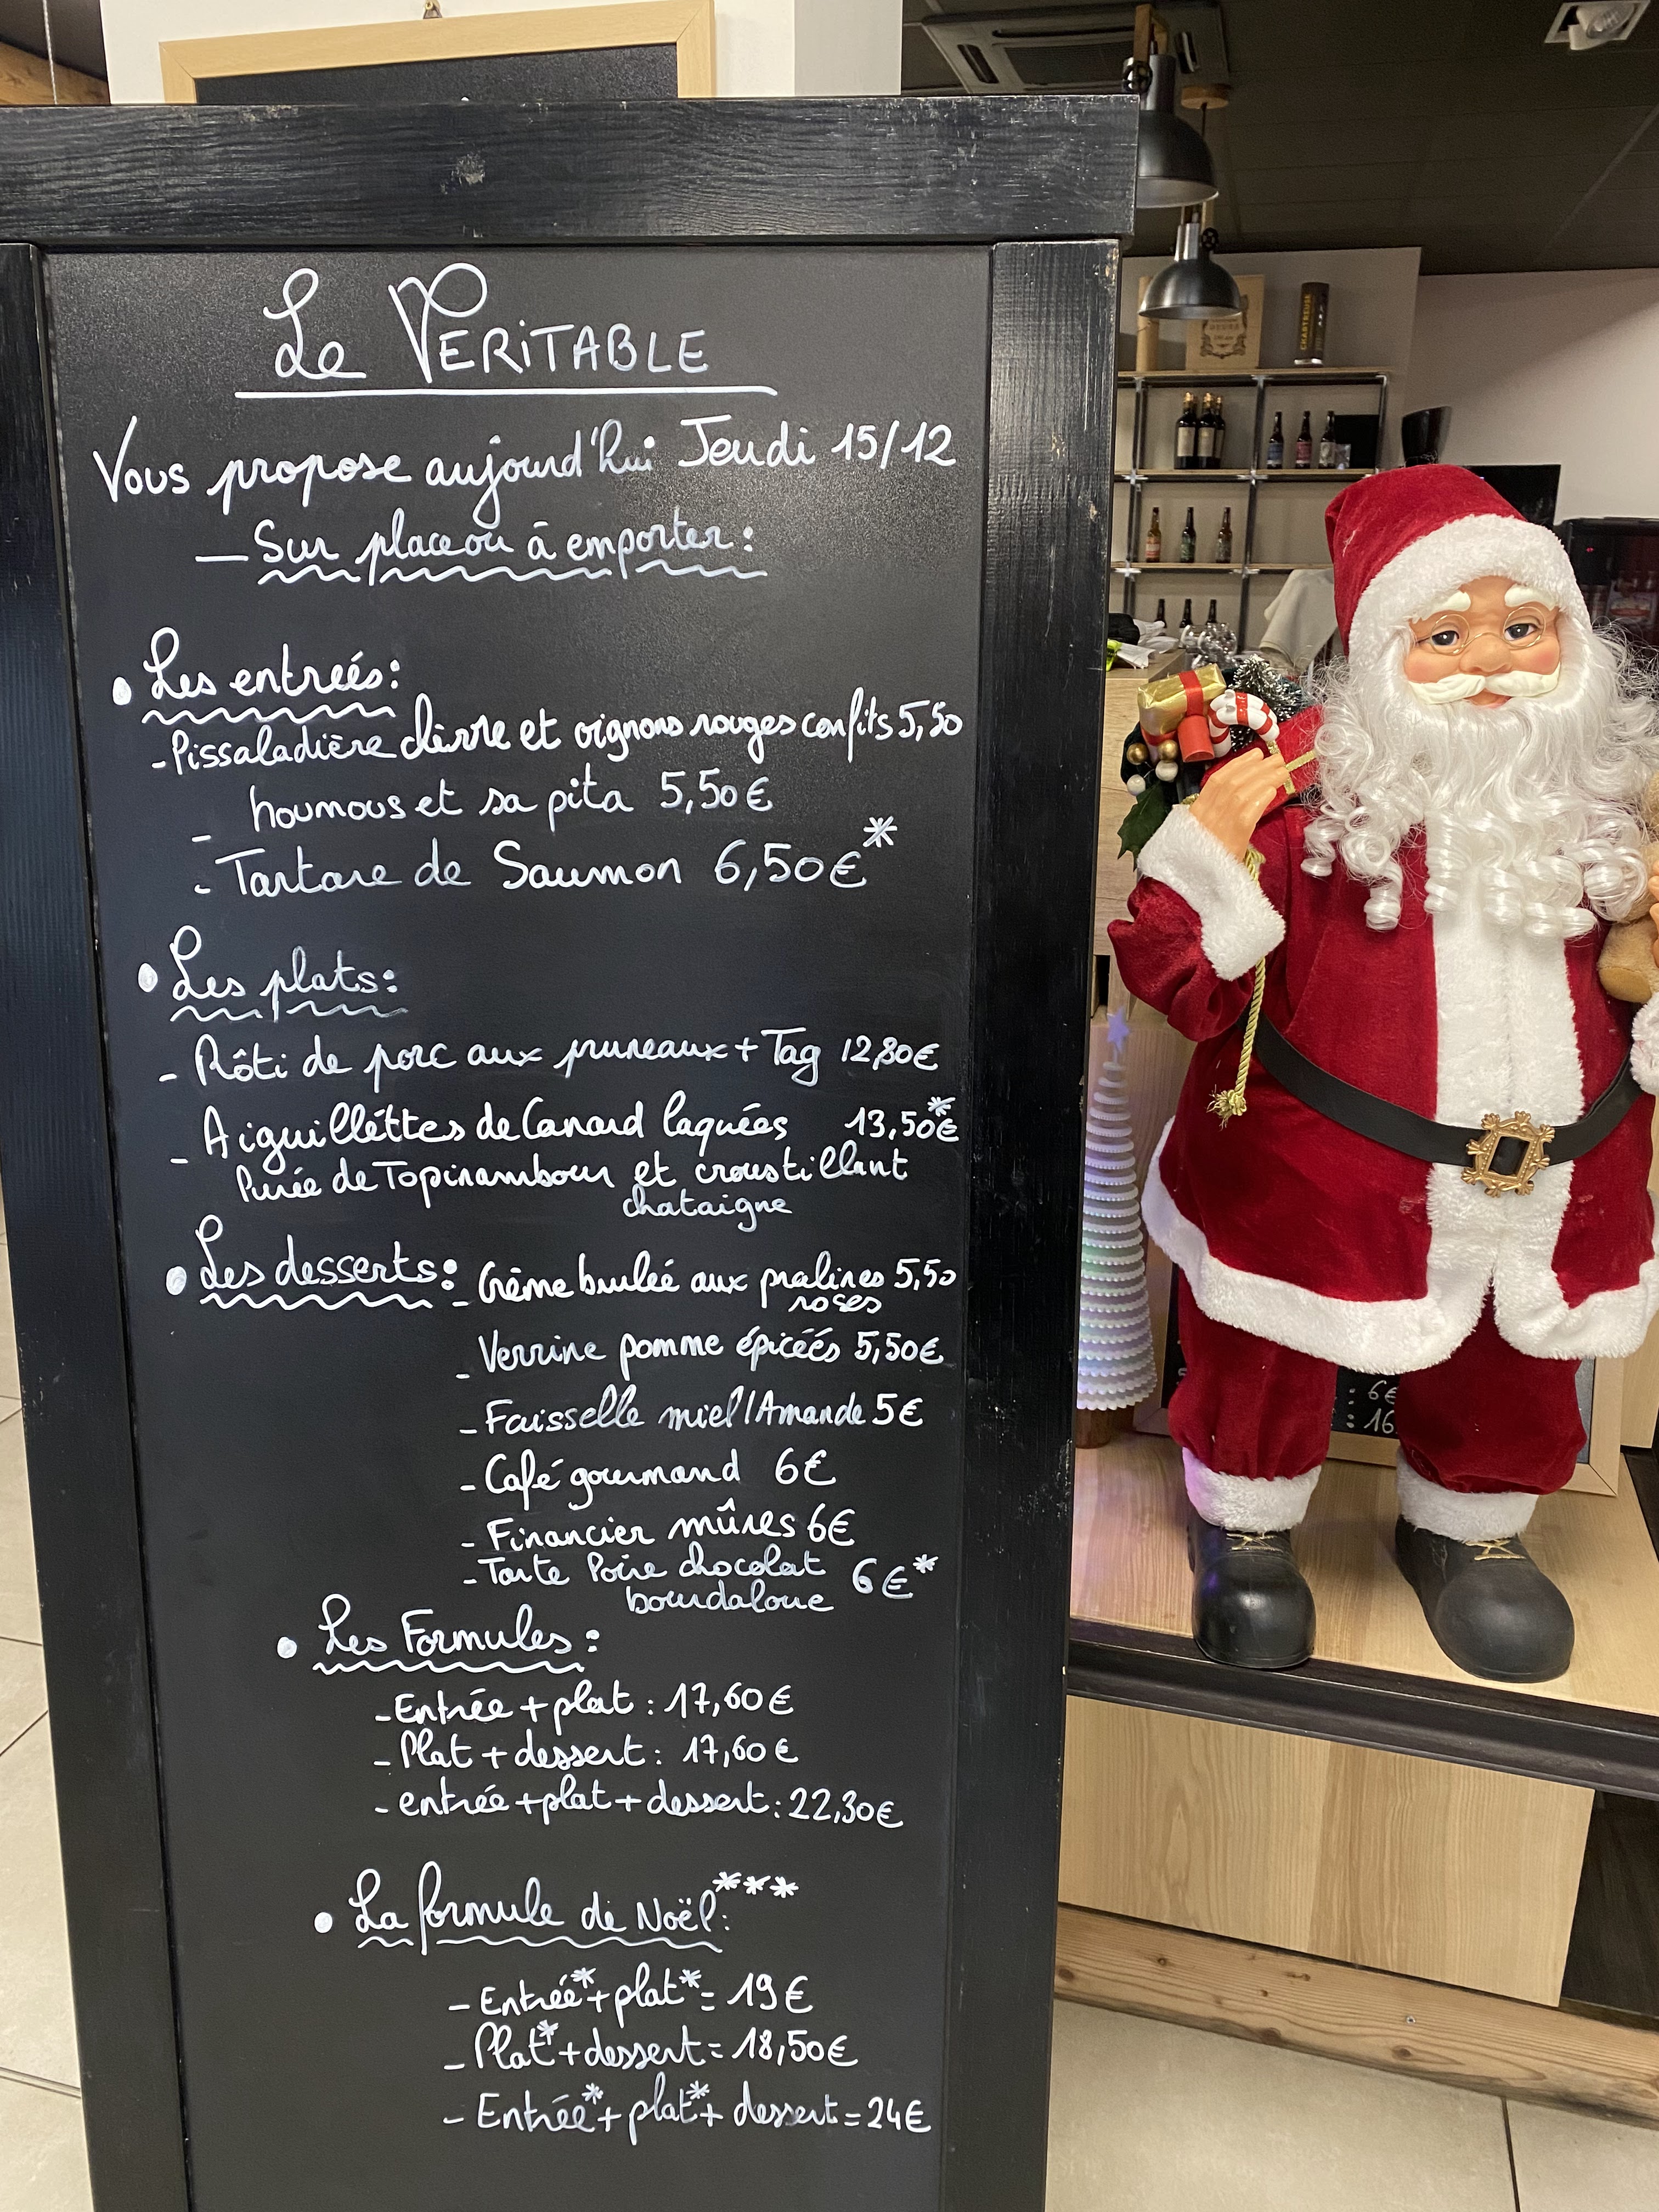 Le VERITABLE
Vous propose aujourd'hui Jeudi 15/12
— Sur place ou à emporter :
• Les entreés :
- Pissaladière chèvre et oignons rouges confits 5,50
- houmous et sa pita 5,50€
- Tartare de Saumon 6,50€*
• Les plats :
- Rôti de porc aux pruneaux + Tag 12,80€
- Aiguilléttes de Canard laquées 13,50€*
Purée de Topinambour et croustillant
chataigne
• Les desserts : - Crème bruleé aux pralines 5,50
roses
- Verrine pomme épicéés 5,50€
- Faisselle miel/Amande 5€
- Café gourmand 6€
- Financier mûres 6€
- Tarte Poire chocolat 6€*
bourdaloue
• Les Formules :
- Entrée + plat : 17,60€
- Plat + dessert : 17,60€
- entrée + plat + dessert : 22,30€
• La formule de Noël*** :
- Entrée* + plat* = 19€
- Plat* + dessert = 18,50€
- Entrée* + plat* + dessert = 24€
CHARTREUSE
: 6€
: 16